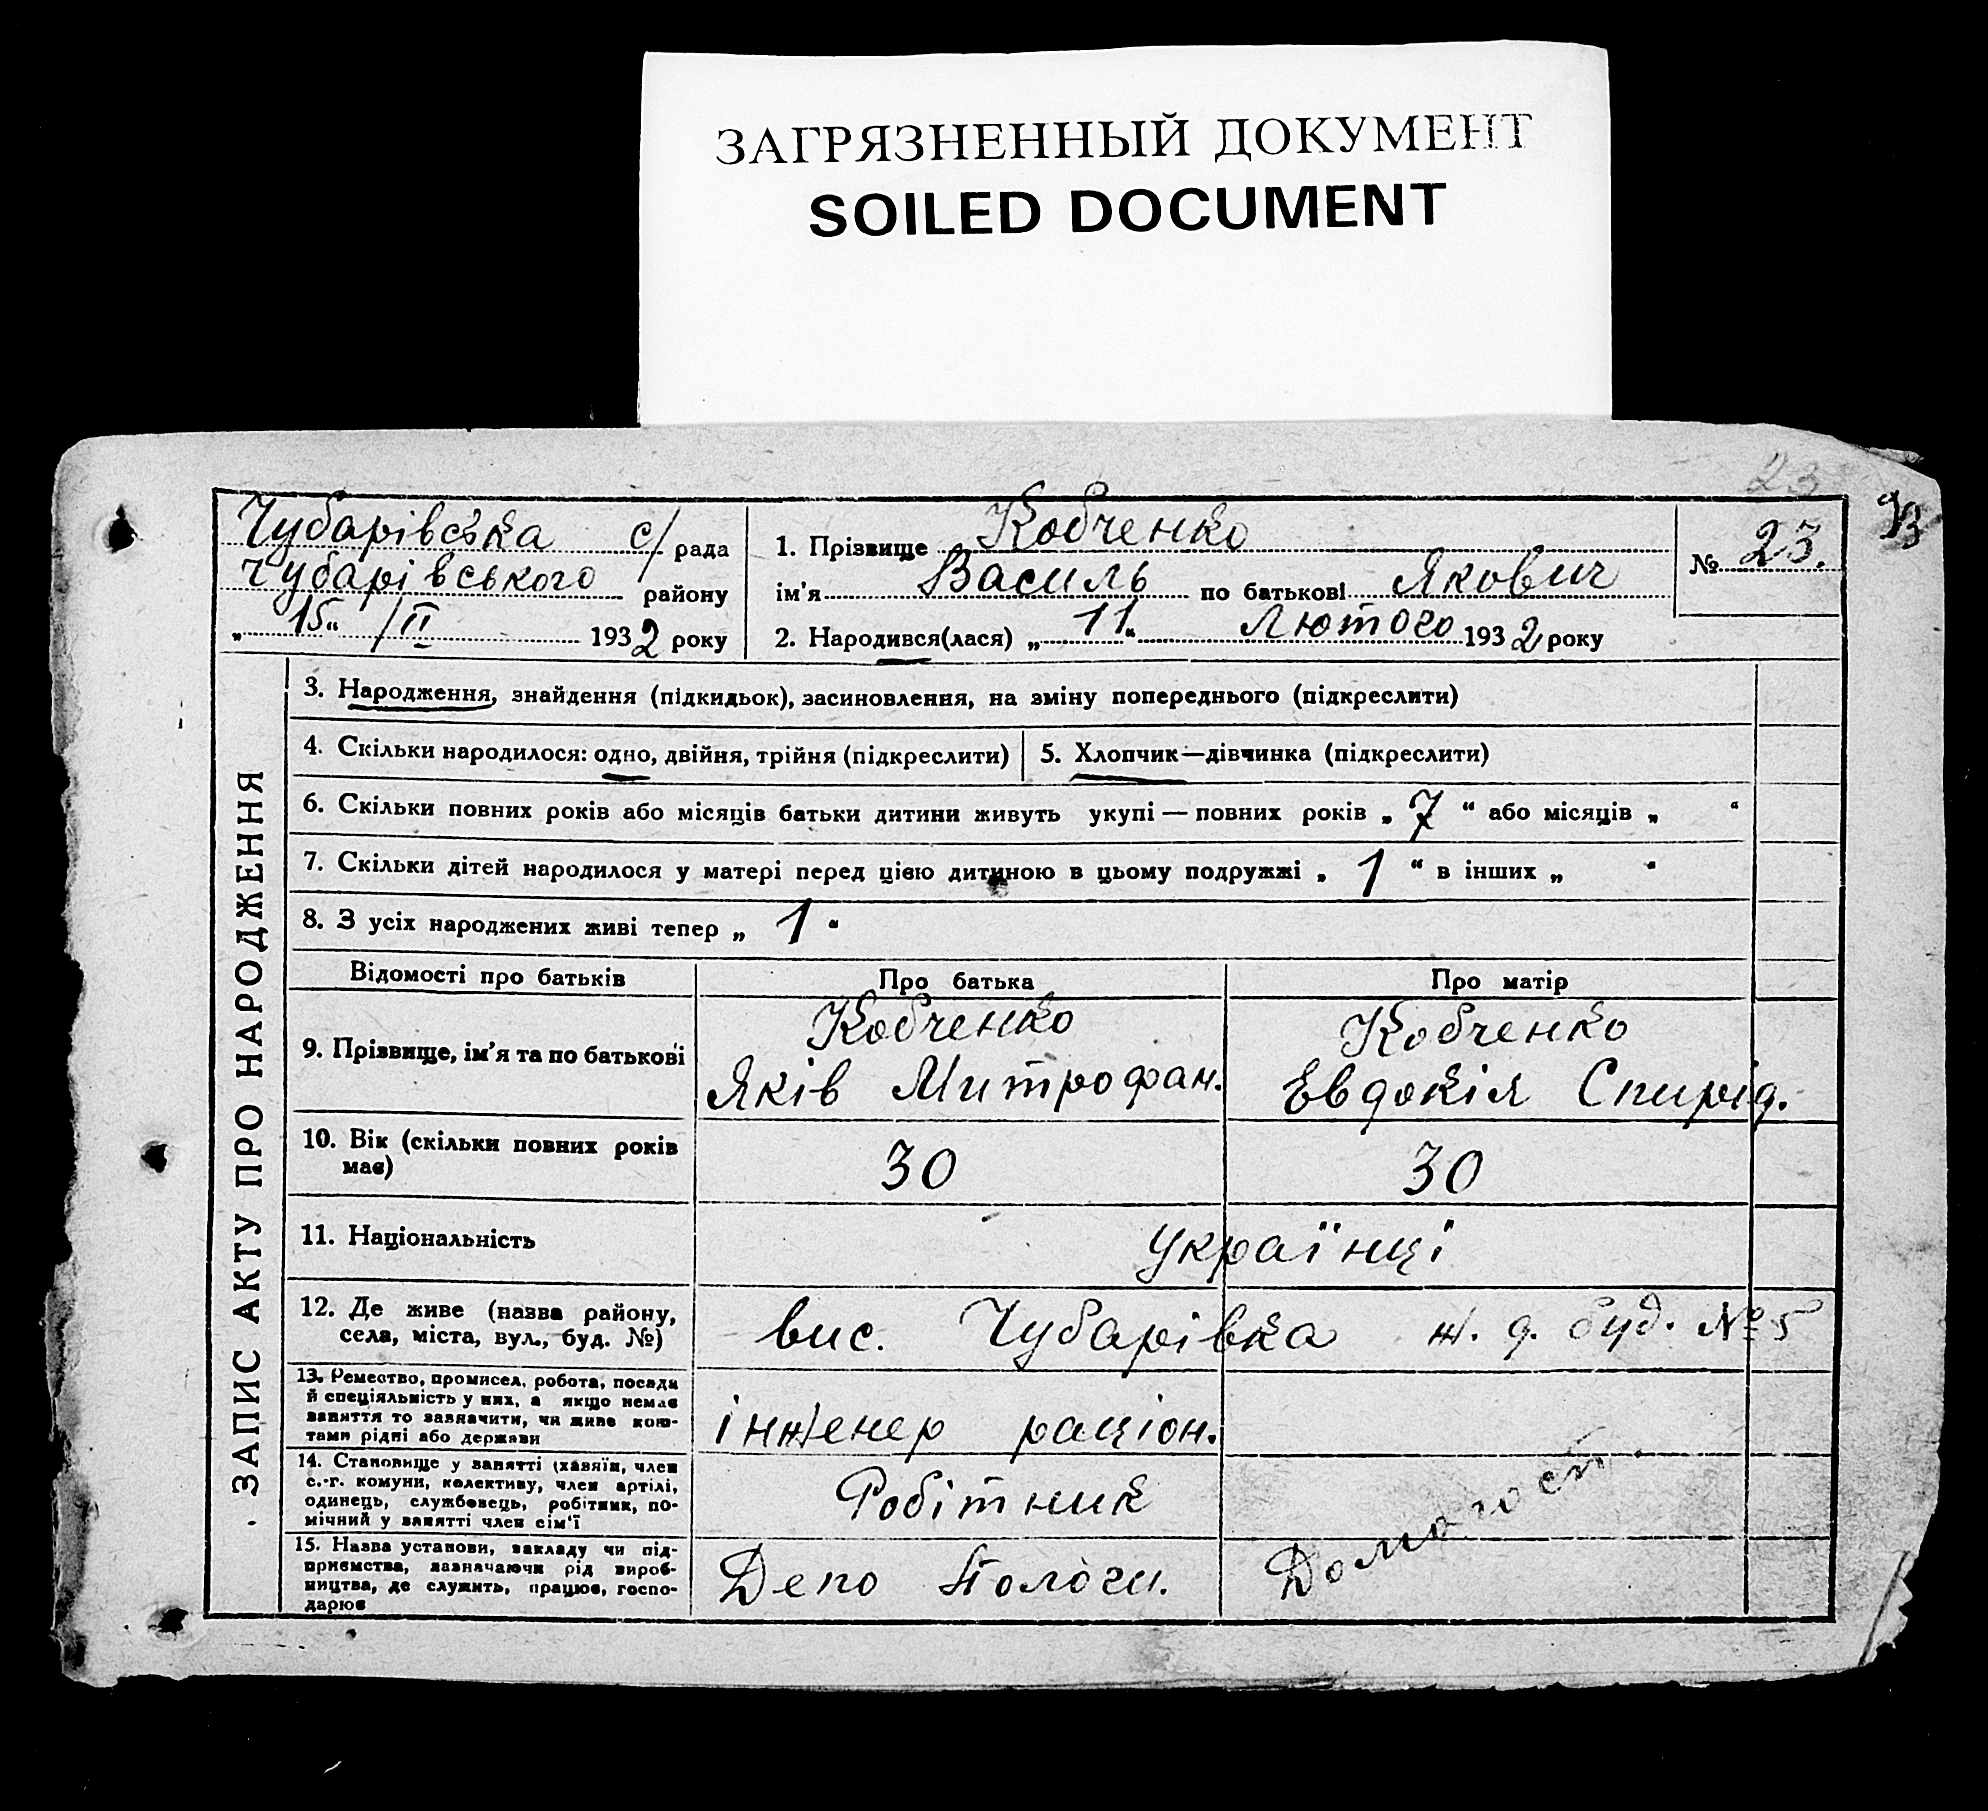 ЗАГРЯЗНЕННЫЙ ДОКУМЕНТ
SOILED DOCUMENT
23
Чубарівська с/рада
Чубарівського району
„15“ /II 1932 року
1. Прізвище Кобченко
ім'я Василь по батькові Якович
2. Народився(лася) „11“ Лютого 1932 року
№ 23.
ЗАПИС АКТУ ПРО НАРОДЖЕННЯ
3. Народження, знайдення (підкидьок), засиновлення, на зміну попереднього (підкреслити)
4. Скільки народилося: одно, двійня, трійня (підкреслити)
5. Хлопчик—дівчинка (підкреслити)
6. Скільки повних років або місяців батьки дитини живуть укупі — повних років „7“ або місяців „ “
7. Скільки дітей народилося у матері перед цією дитиною в цьому подружжі „1“ в інших „ “
8. З усіх народжених живі тепер „1“
Відомості про батьків Про батька Про матір
9. Прізвище, ім'я та по батькові
Кобченко
Яків Митрофан.
Кобченко
Евдокія Спирід.
10. Вік (скільки повних років
має)
30
30
11. Національність
українці
12. Де живе (назва району,
села, міста, вул., буд. №)
вис. Чубарівка ж. д. буд. № 5
13. Ремество, промисел, робота, посада
й спеціяльність у них, а якщо немає
заняття то зазначити, чи живе кош-
тами рідні або держави
інженер раціон.
14. Становище у занятті (хазяїн, член
с.-г. комуни, колективу, член артілі,
одинець, службовець, робітник, по-
мічний у занятті член сім'ї
Робітник
15. Назва установи, закладу чи під-
приємства, зазначаючи рід вироб-
ництва, де служить, працює, госпо-
дарює
Депо Пологи.
Домогосп.